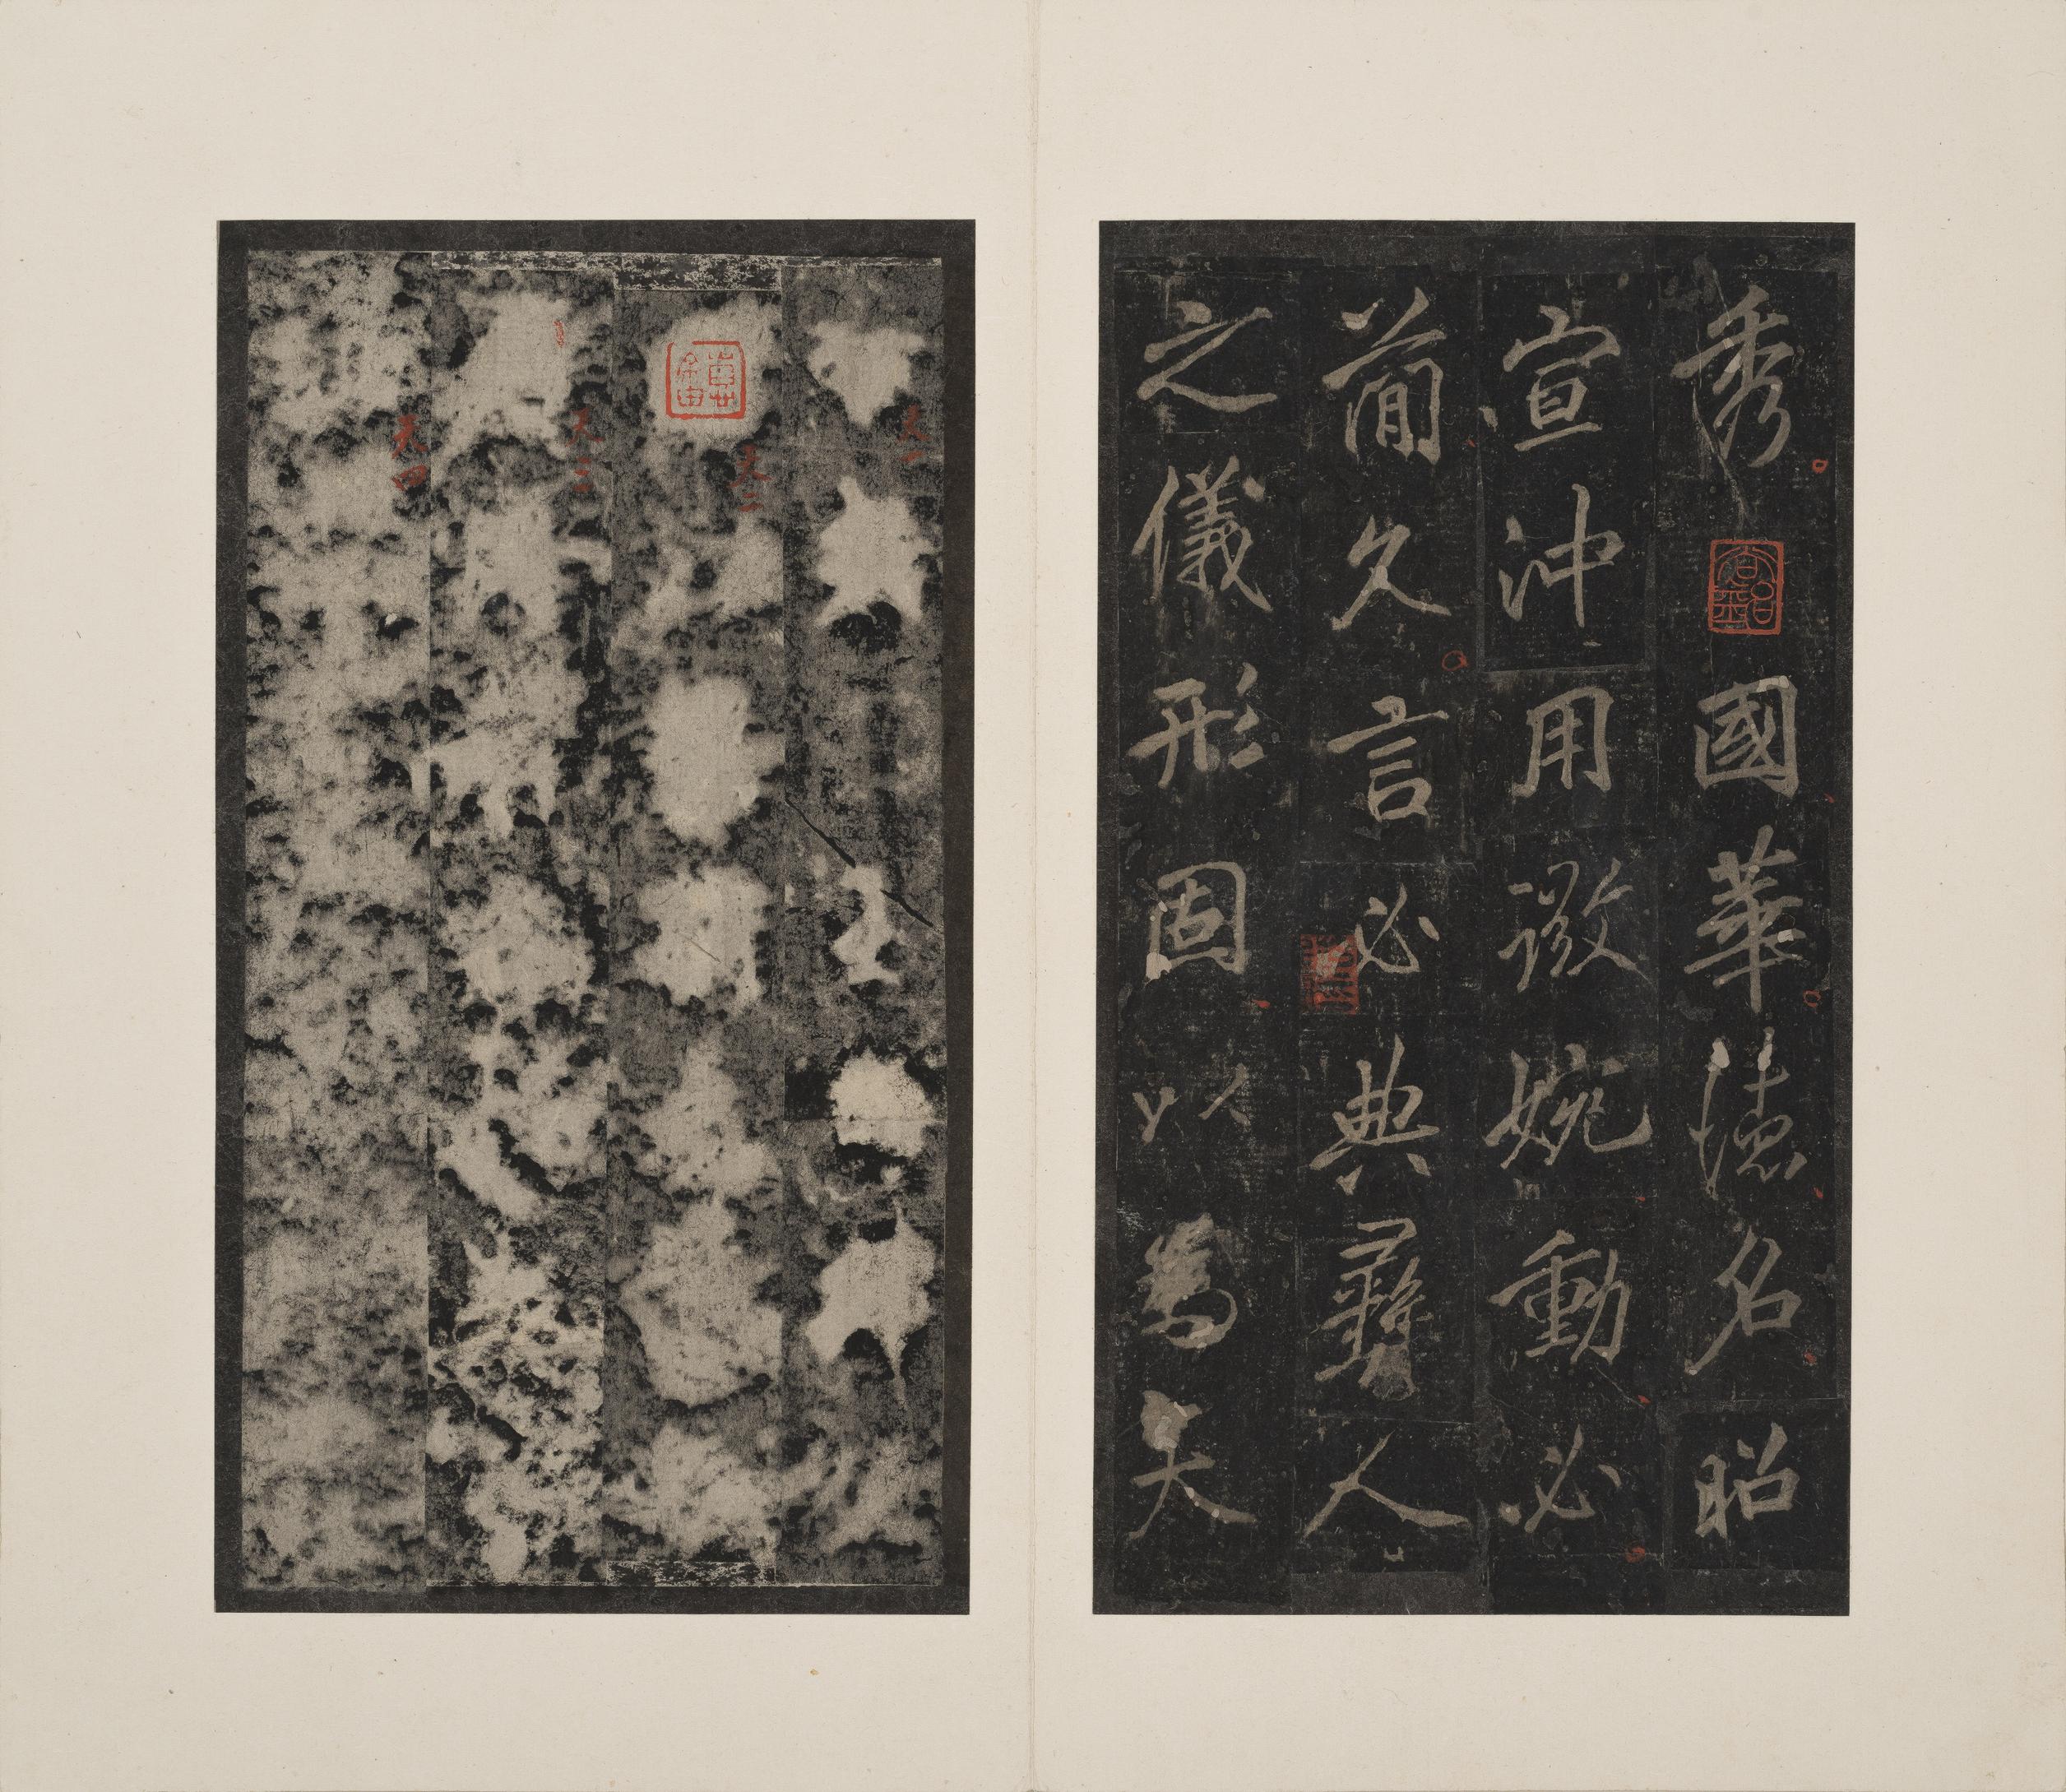 秀國華德名昭
宣沖用徽婉動必
蕳久言必典彝人
之儀形固以為夫
天一
天二
天三
天四